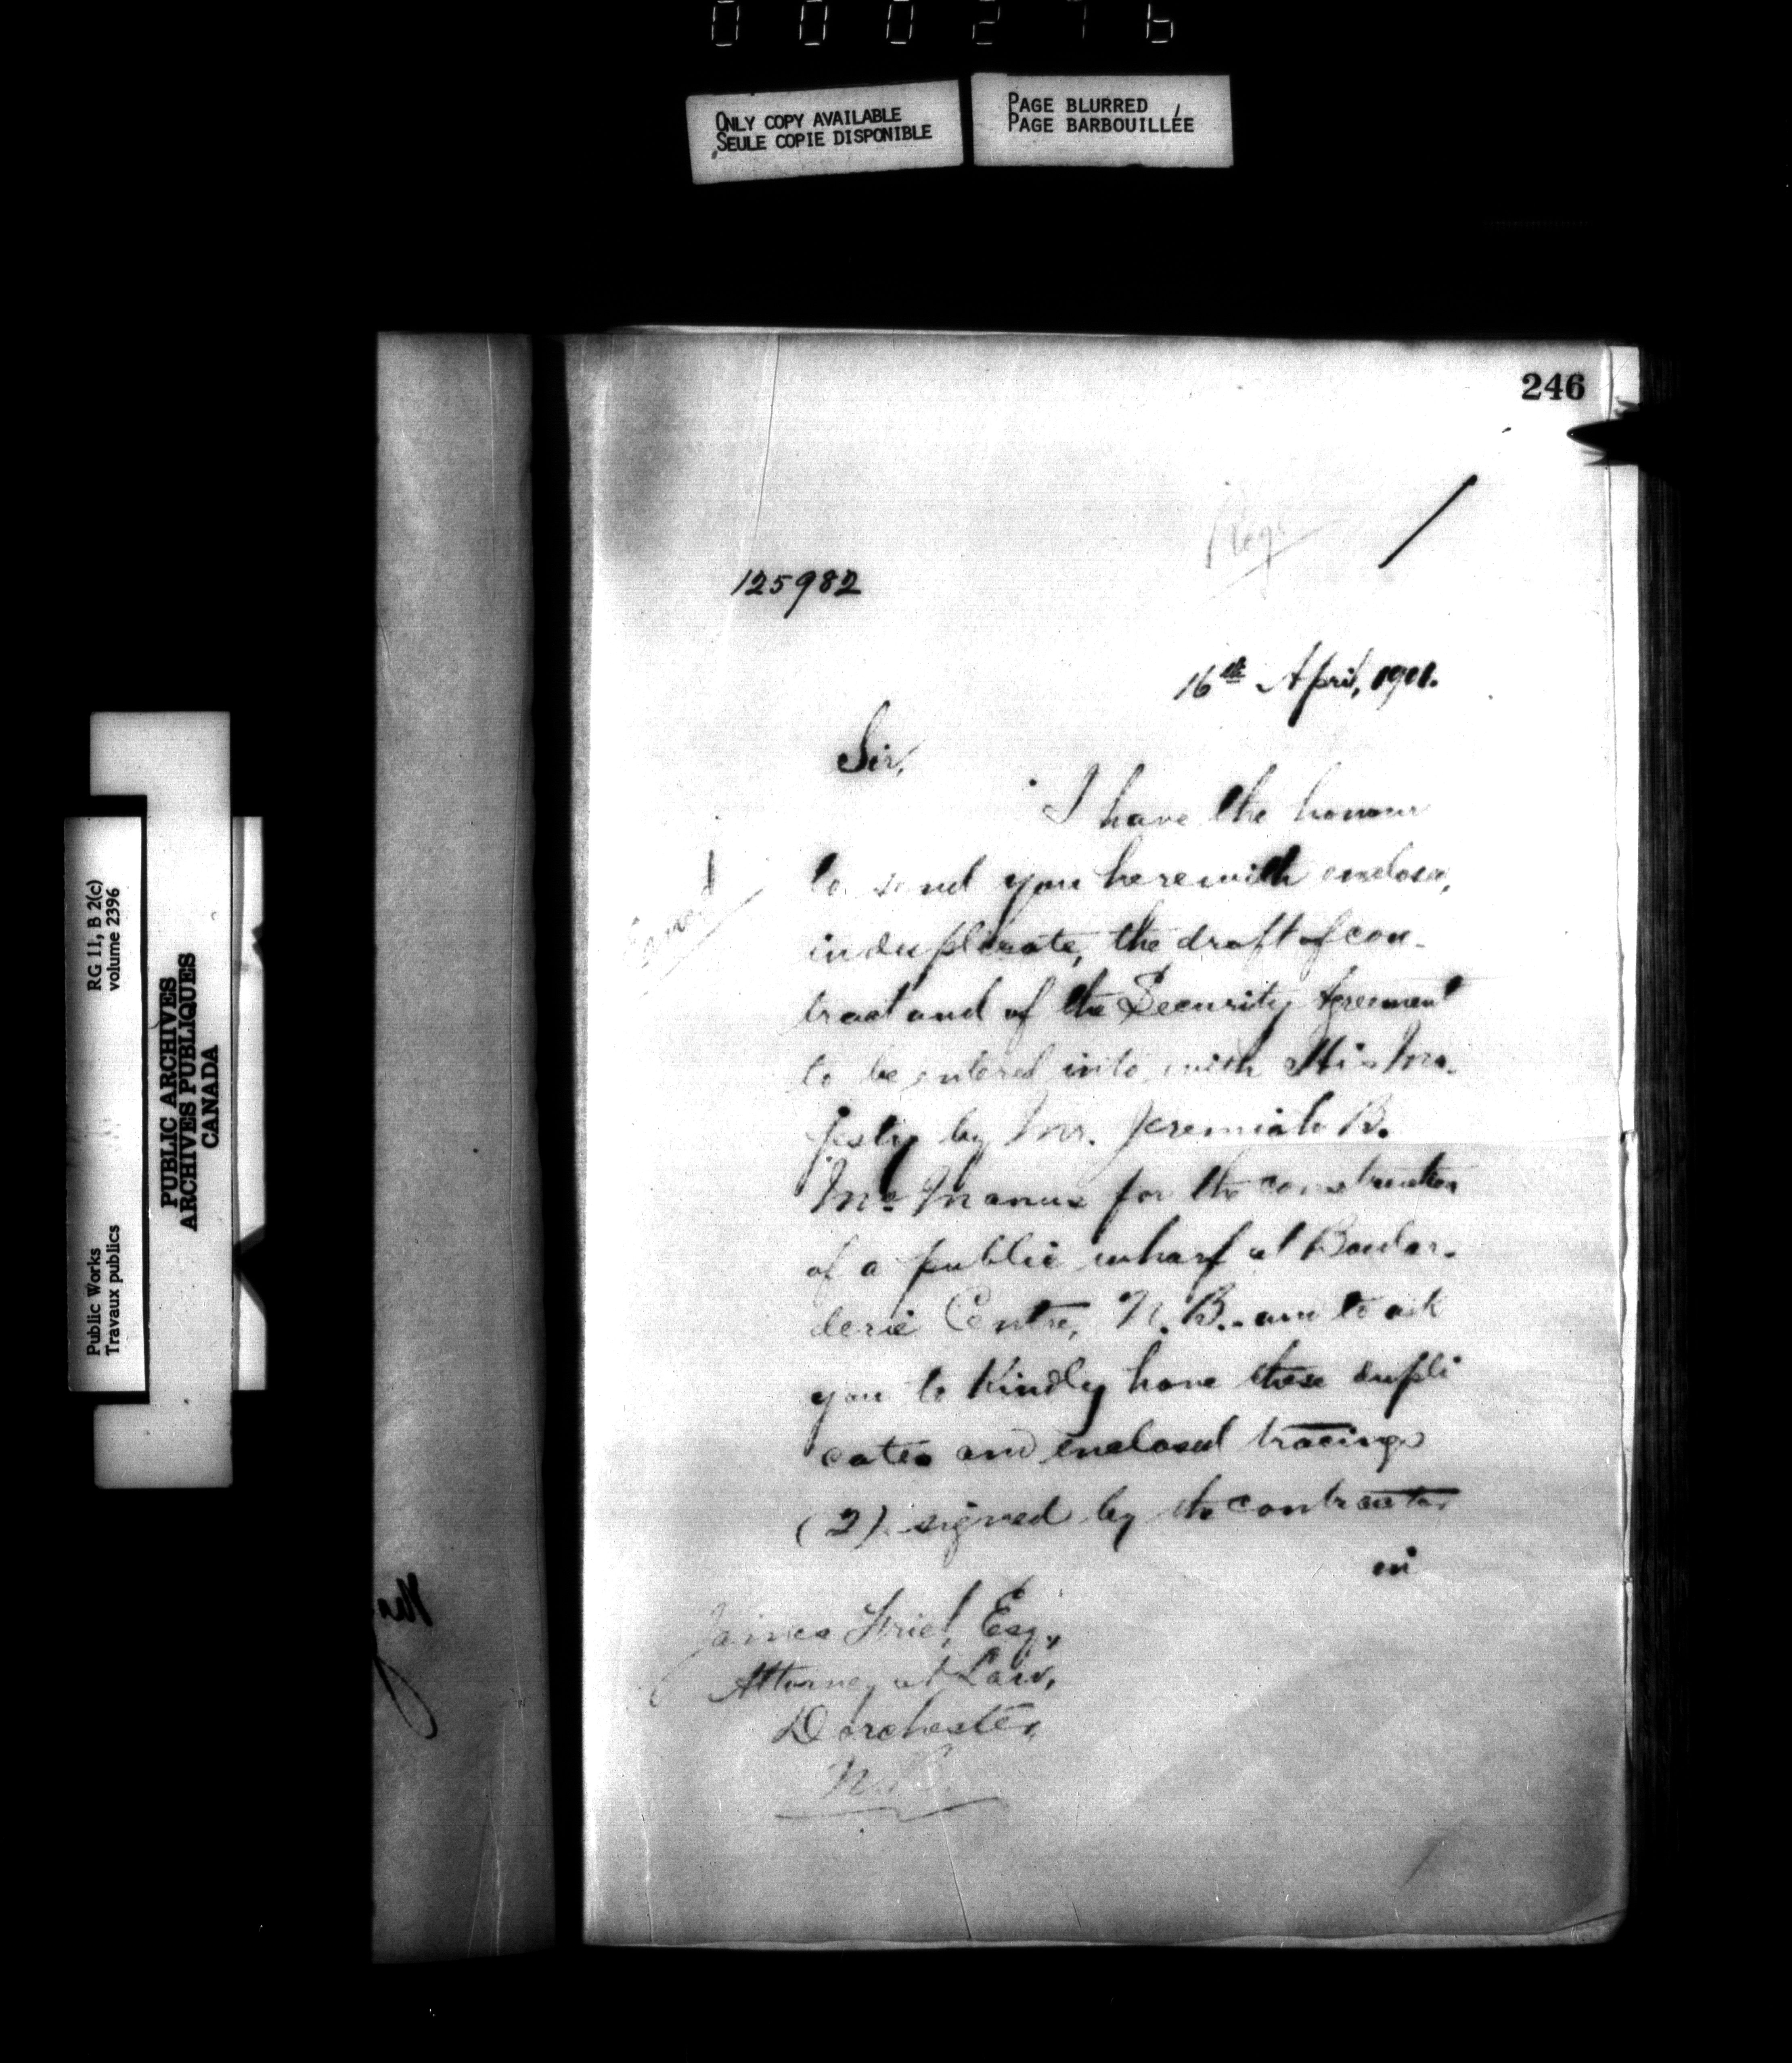 000276
ONLY COPY AVAILABLE
SEULE COPIE DISPONIBLE
PAGE BLURRED
PAGE BARBOUILLÉE
246
125982
16th April, 1901.
Sir,
I have the honour
to send you herewith enclosed,
in duplicate, the draft of con-
tract and of the Security Agreement
to be entered into with His Ma-
jesty by Mr. Jeremiah B.
McManus for the construction
of a public wharf at Boular-
derie Centre, N.B. - am to ask
you to kindly have these dupli
cates and enclosed tracings
(2) signed by the contractor
in
James Friel, Esq.,
Attorney at Law,
Dorchester,
N.B.
RG 11, B 2(c)
volume 2396
Public Works
Travaux publics
PUBLIC ARCHIVES
ARCHIVES PUBLIQUES
CANADA